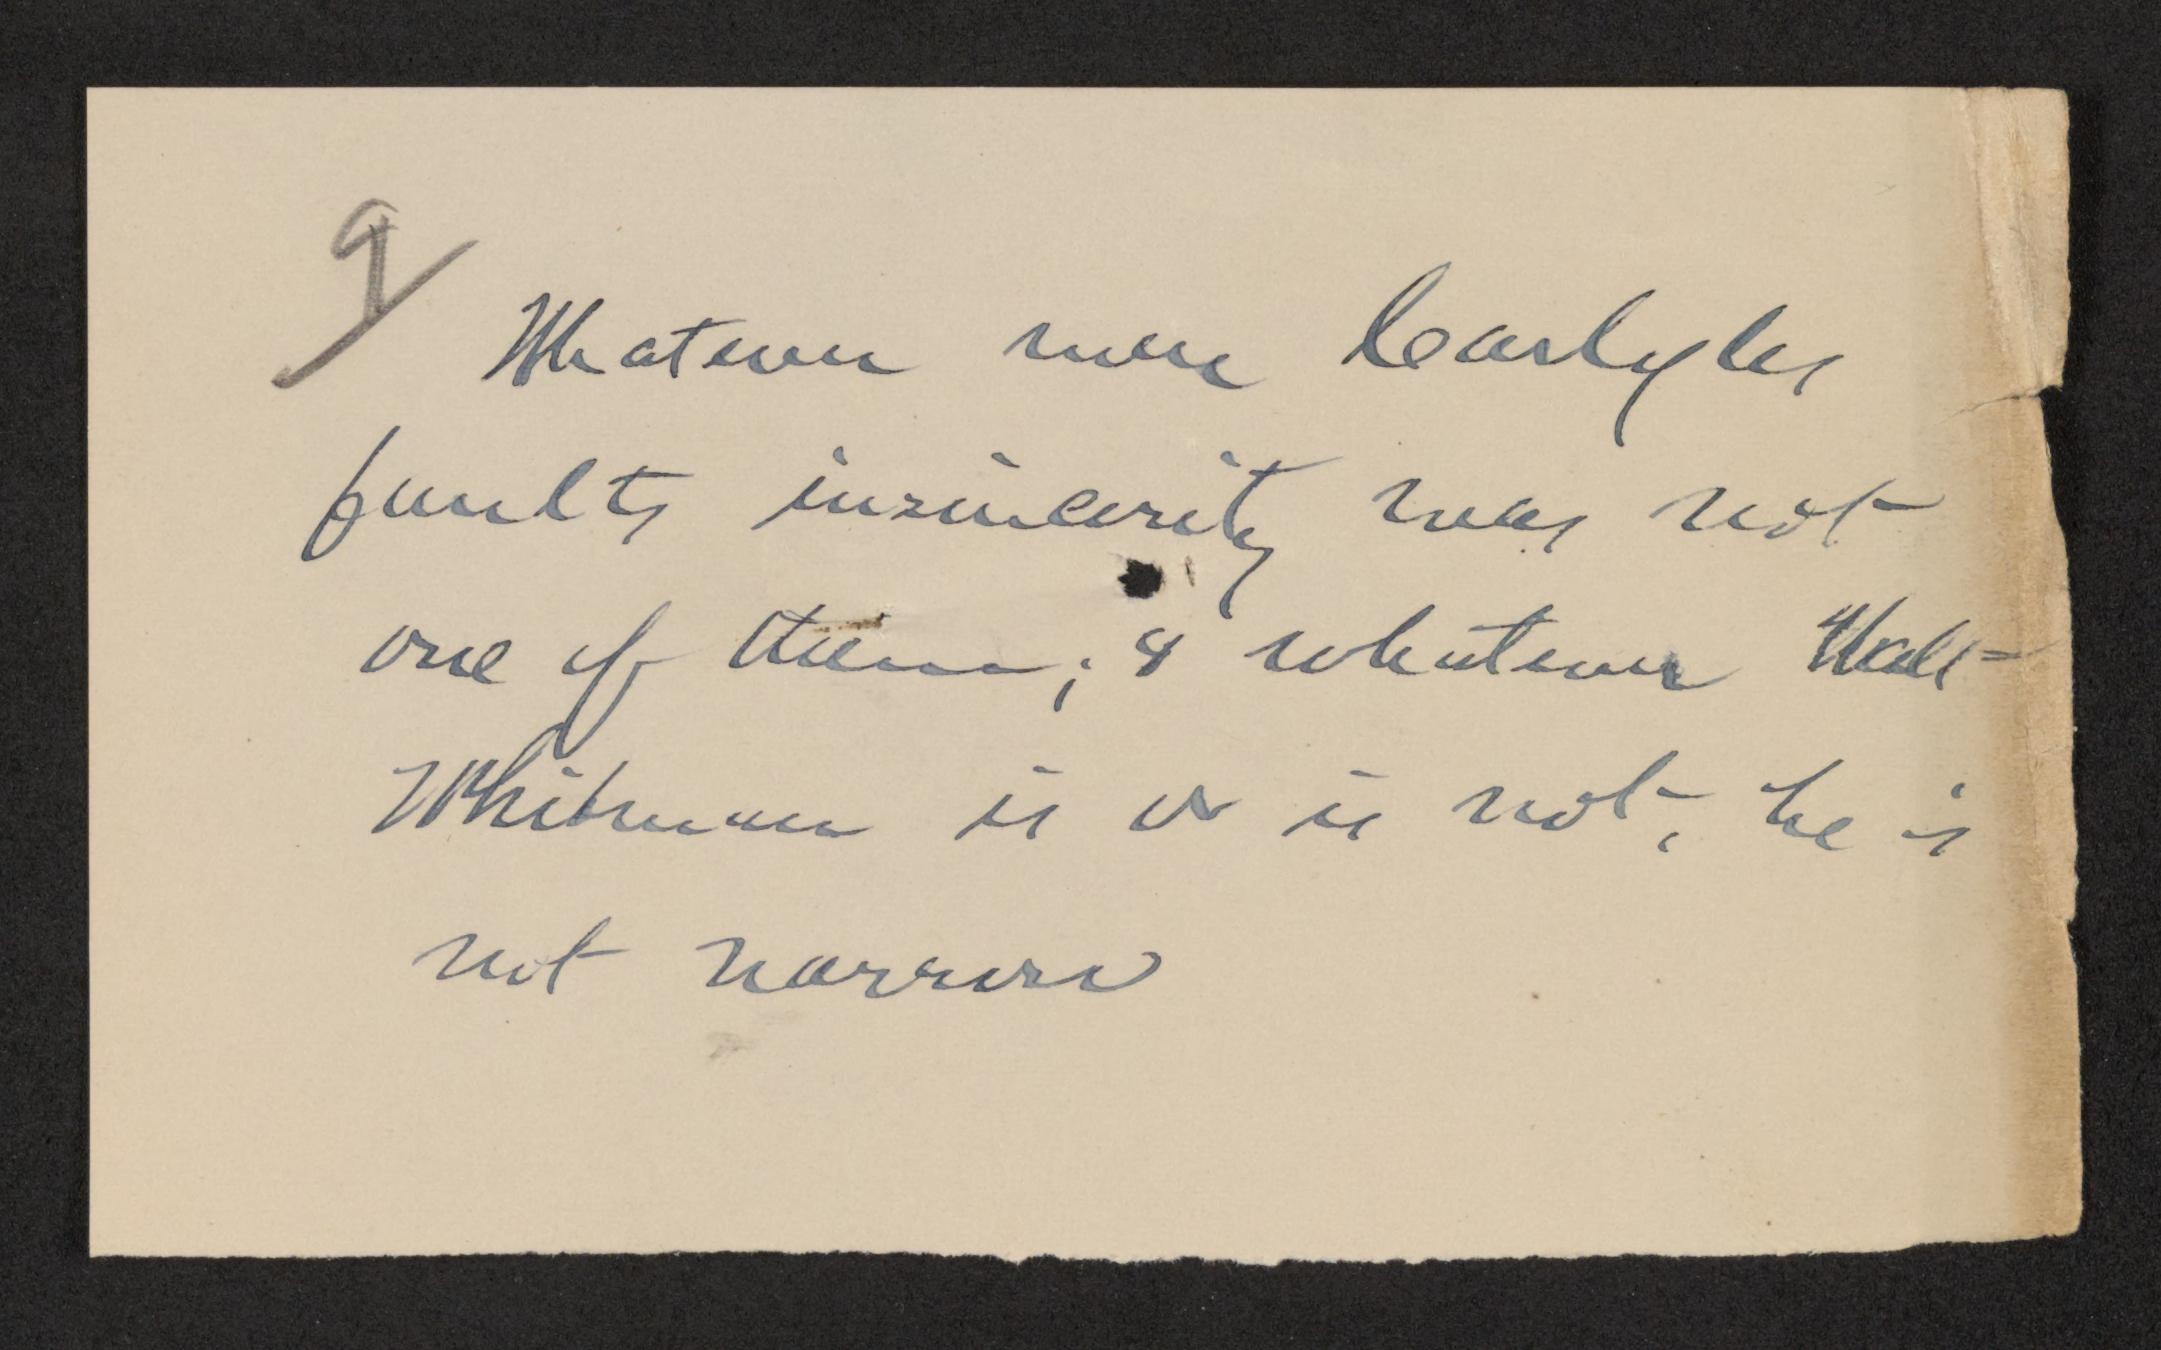 9
Whatever were Carlyles
faults insincerity was not
one of them; & whatever Walt
Whitman is or is not, he is
not narrow